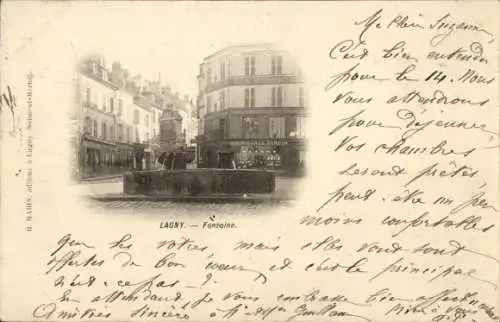 Ma Chère Suzanne
C'est bien entendu
pour le 14. Nous
vous attendrons
pour déjeuner,
Vos chambres
sont prêtes
peut-être un peu
moins confortables
que les vôtres, mais elles vous sont
offertes de bon coeur, et c'est le principal
n'est-ce pas?
En attendant je vous embrasse bien affectueusement
Amitiés sincères à
LAGNY. — Fontaine.
H. MARIN, éditeur à Lagny (Seine-et-Marne).